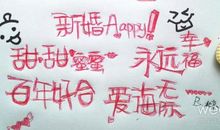 新婚Aappy!
甜甜蜜蜜 永远幸福
百年好合 爱海无际